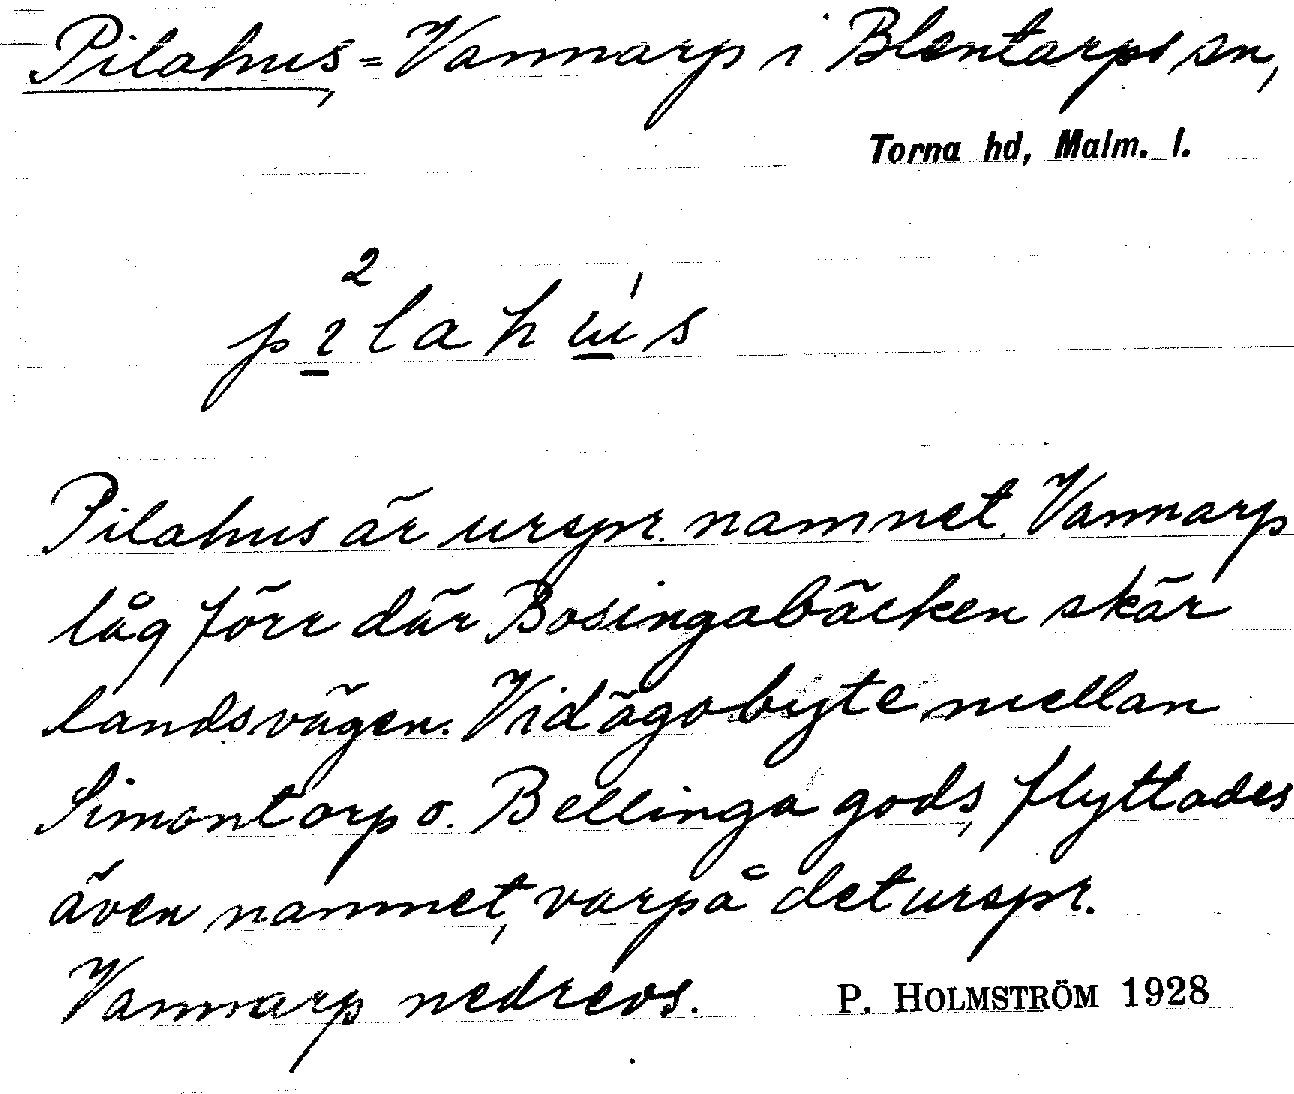 Pilahus, = Vannarp i Blentarps sn,
Torna hd, Malm. l.
pilahus
Pilahus är urspr. namnet. Vannarp
låg förr där Bosingabäcken skär
landsvägen. Vid ägobyte mellan
Simontorp o. Bellinga gods, flyttades
även namnet, varpå det urspr.
Vannarp nedrevs. P. HOLMSTRÖM 1928